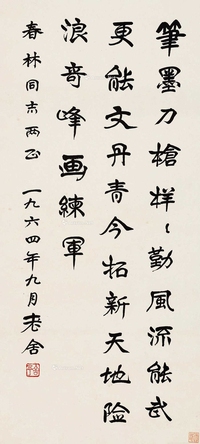 筆墨刀槍样々勤風流能武
更能文丹青今拓新天地险
浪奇峰画練軍
春林同志两正 一九六四年九月 老舍